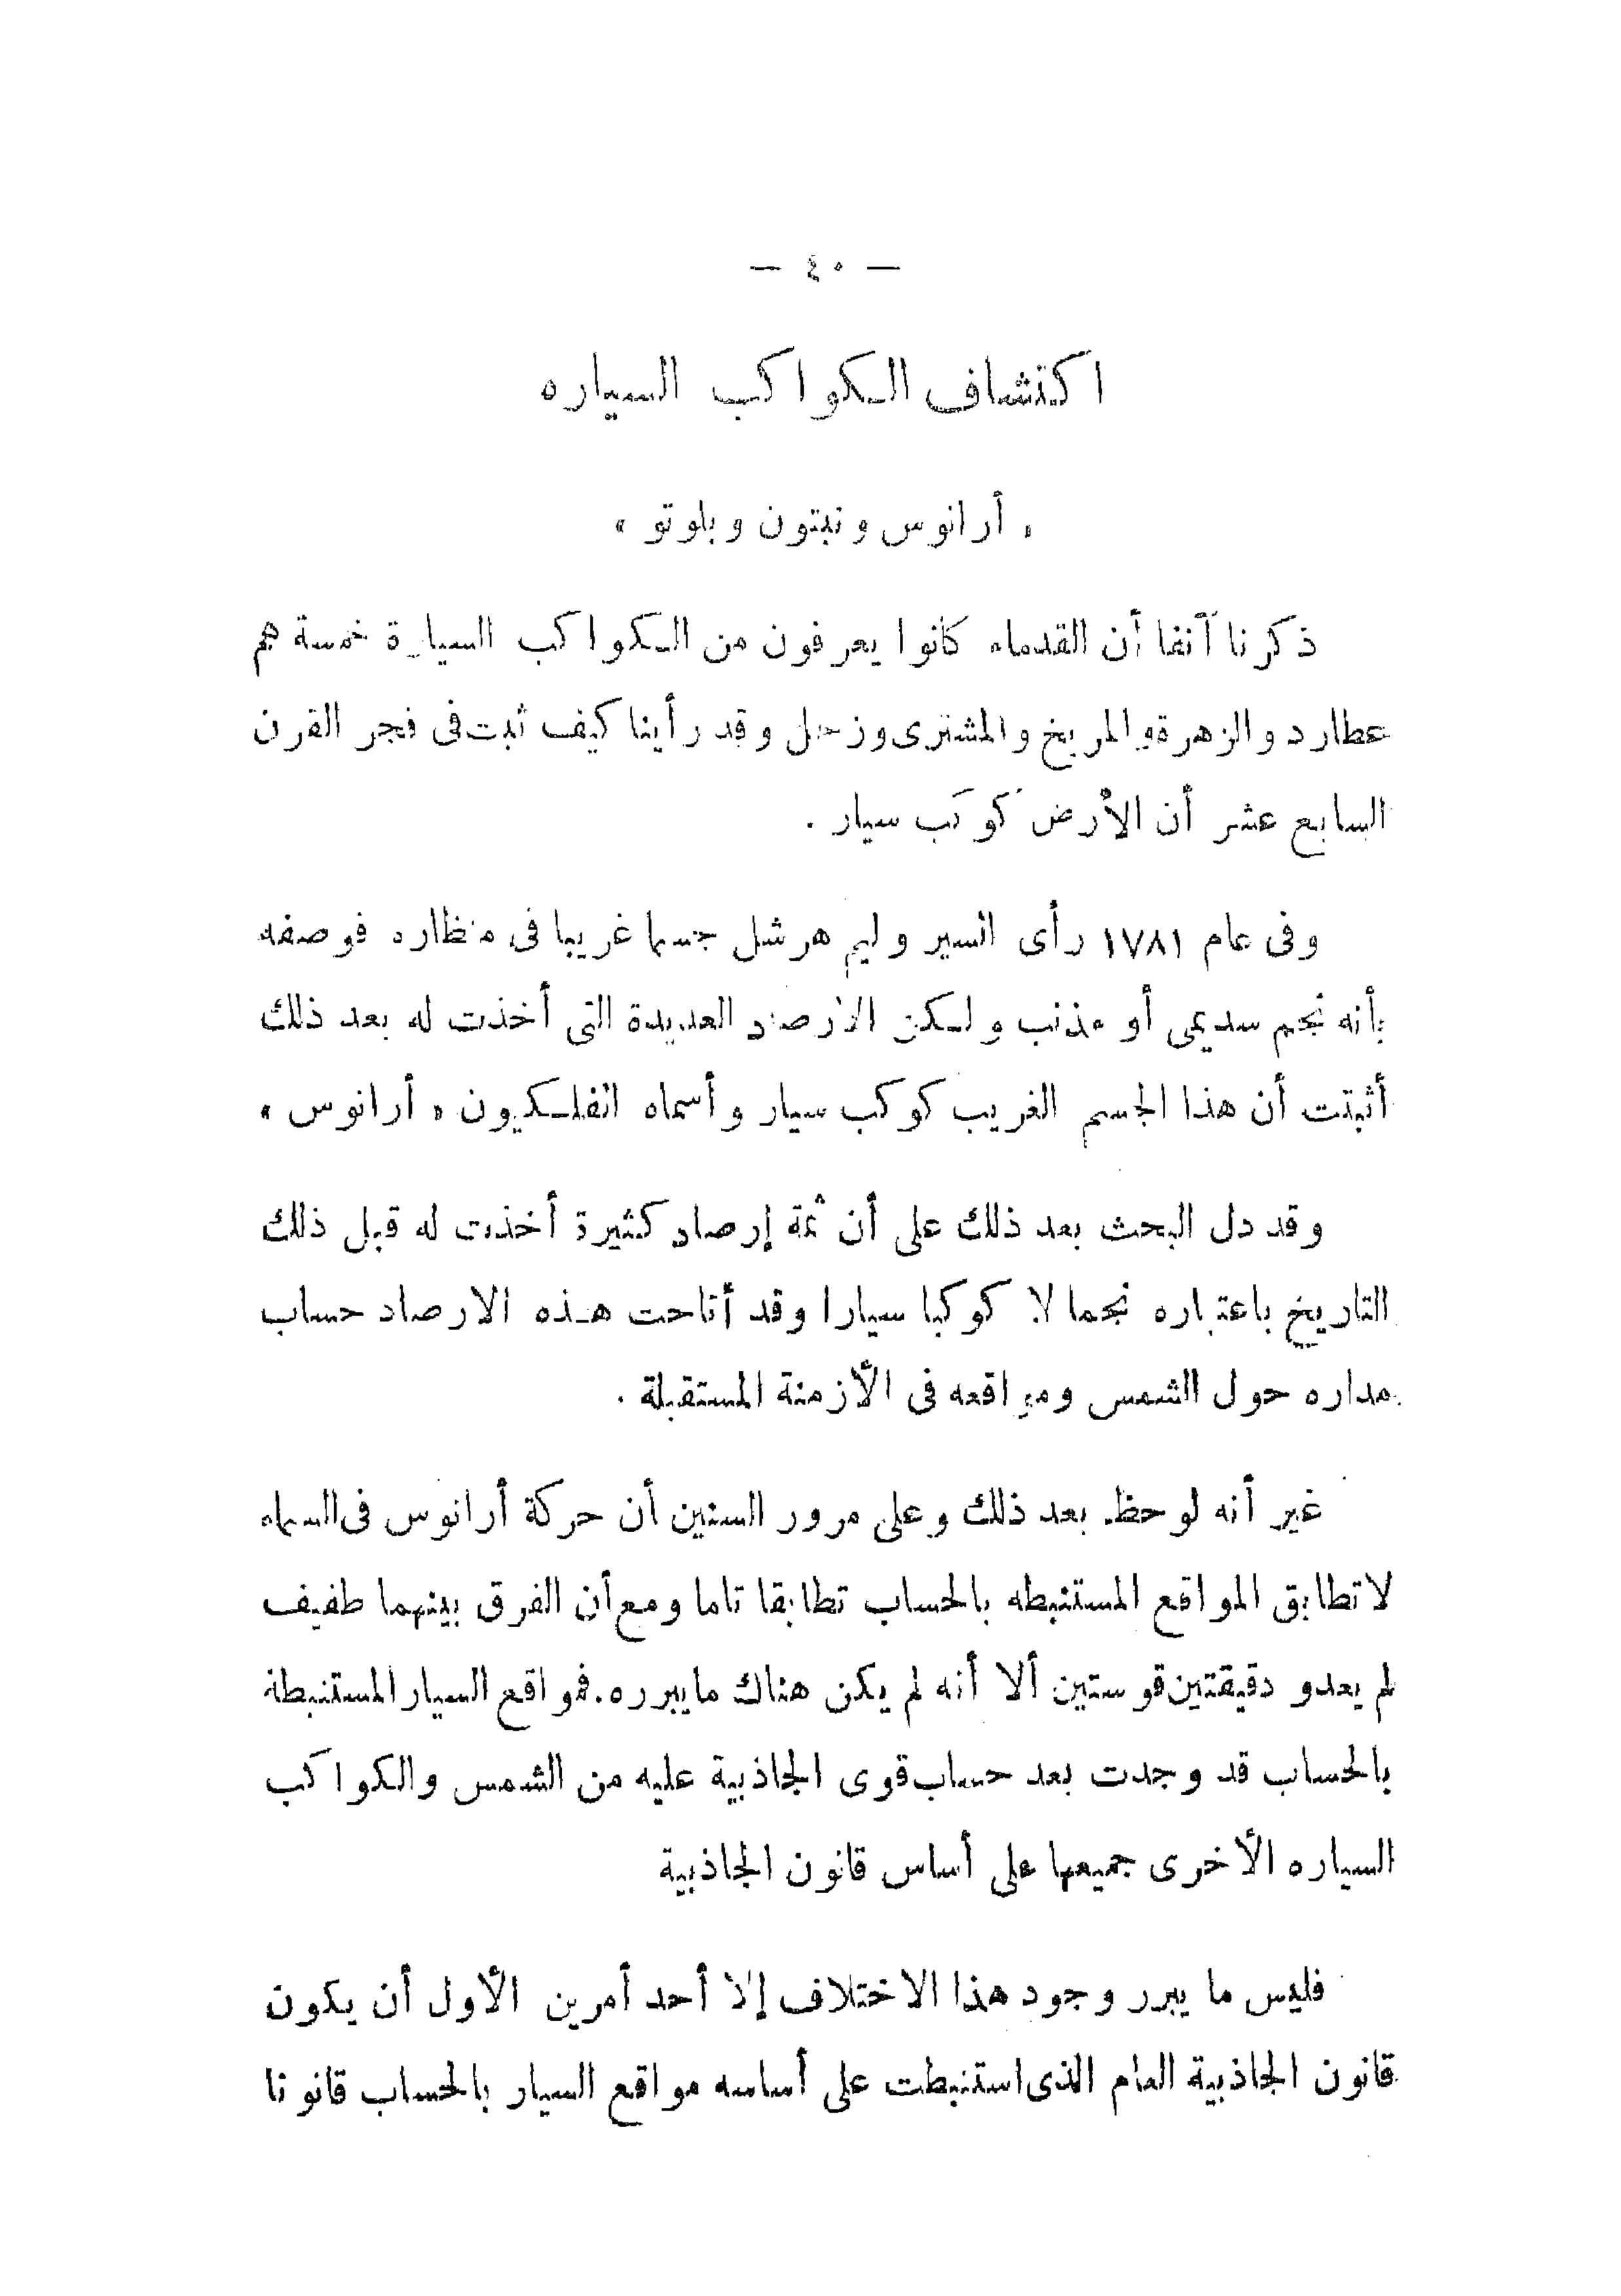 — ٤٠ —
اكتشاف الكواكب السياره
« أرانوس ونبتون وبلوتو »
ذكرنا آنفا أن القدماء كانوا يعرفون من الكواكب السيارة خمسة هم
عطارد والزهرة والمريخ والمشترى وزحل وقد رأينا كيف ثبت فى فجر القرن
السابع عشر أن الأرض كوكب سيار .
وفى عام ١٧٨١ رأى السير وليم هرشل جسما غريبا فى منظاره فوصفه
بأنه نجم سديمى أو مذنب ولكن الأرصاد العديدة التى أخذت له بعد ذلك
أثبتت أن هذا الجسم الغريب كوكب سيار وأسماه الفلكيون « أرانوس »
وقد دل البحث بعد ذلك على أن ثمة إرصاد كثيرة أخذت له قبل ذلك
التاريخ باعتباره نجما لا كوكبا سيارا وقد أتاحت هذه الارصاد حساب
مداره حول الشمس ومواقعه فى الأزمنة المستقبلة .
غير أنه لوحظ بعد ذلك وعلى مرور السنين أن حركة أرانوس فى السماء
لا تطابق المواقع المستنبطه بالحساب تطابقا تاما ومع أن الفرق بينهما طفيف
لم يعدو دقيقتين قوستين ألا أنه لم يكن هناك ما يبرره . فمواقع السيار المستنبطة
بالحساب قد وجدت بعد حساب قوى الجاذبية عليه من الشمس والكواكب
السياره الأخرى جميعها على أساس قانون الجاذبية
فليس ما يبرر وجود هذا الاختلاف إلا أحد أمرين الأول أن يكون
قانون الجاذبية العام الذى استنبطت على أساسه مواقع السيار بالحساب قانونا